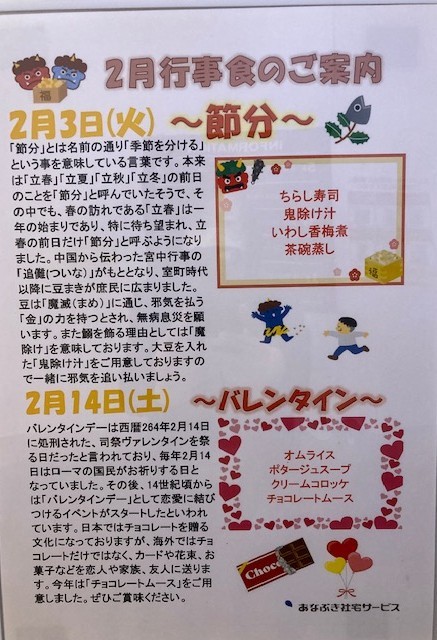 2月行事食のご案内
福
2月3日(火) ～節分～
「節分」とは名前の通り「季節を分ける」
という事を意味している言葉です。本来
は「立春」「立夏」「立秋」「立冬」の前日
のことを「節分」と呼んでいたそうで、そ
の中でも、春の訪れである「立春」は一
年の始まりであり、特に待ち望まれ、立
春の前日だけ「節分」と呼ぶようになり
ました。中国から伝わった宮中行事の
「追儺(ついな)」がもととなり、室町時代
以降に豆まきが庶民に広まりました。
豆は「魔滅(まめ)」に通じ、邪気を払う
「金」の力を持つとされ、無病息災を願
います。また鰯を飾る理由としては「魔
除け」を意味しております。大豆を入れ
た「鬼除け汁」をご用意しておりますの
で一緒に邪気を追い払いましょう。
ちらし寿司
鬼除け汁
いわし香梅煮
茶碗蒸し
福
2月14日(土) ～バレンタイン～
バレンタインデーは西暦264年2月14日
に処刑された、司祭ヴァレンタインを祭
る日だったと言われており、毎年2月14
日はローマの国民がお祈りする日と
なっていました。その後、14世紀頃から
は「バレンタインデー」として恋愛に結び
つけるイベントがスタートしたといわれ
ています。日本ではチョコレートを贈る
文化になっておりますが、海外ではチョ
コレートだけではなく、カードや花束、お
菓子などを恋人や家族、友人に送りま
す。今年は「チョコレートムース」をご用
意しました。ぜひご賞味ください。
オムライス
ポタージュスープ
クリームコロッケ
チョコレートムース
Choco
あなぶき社宅サービス